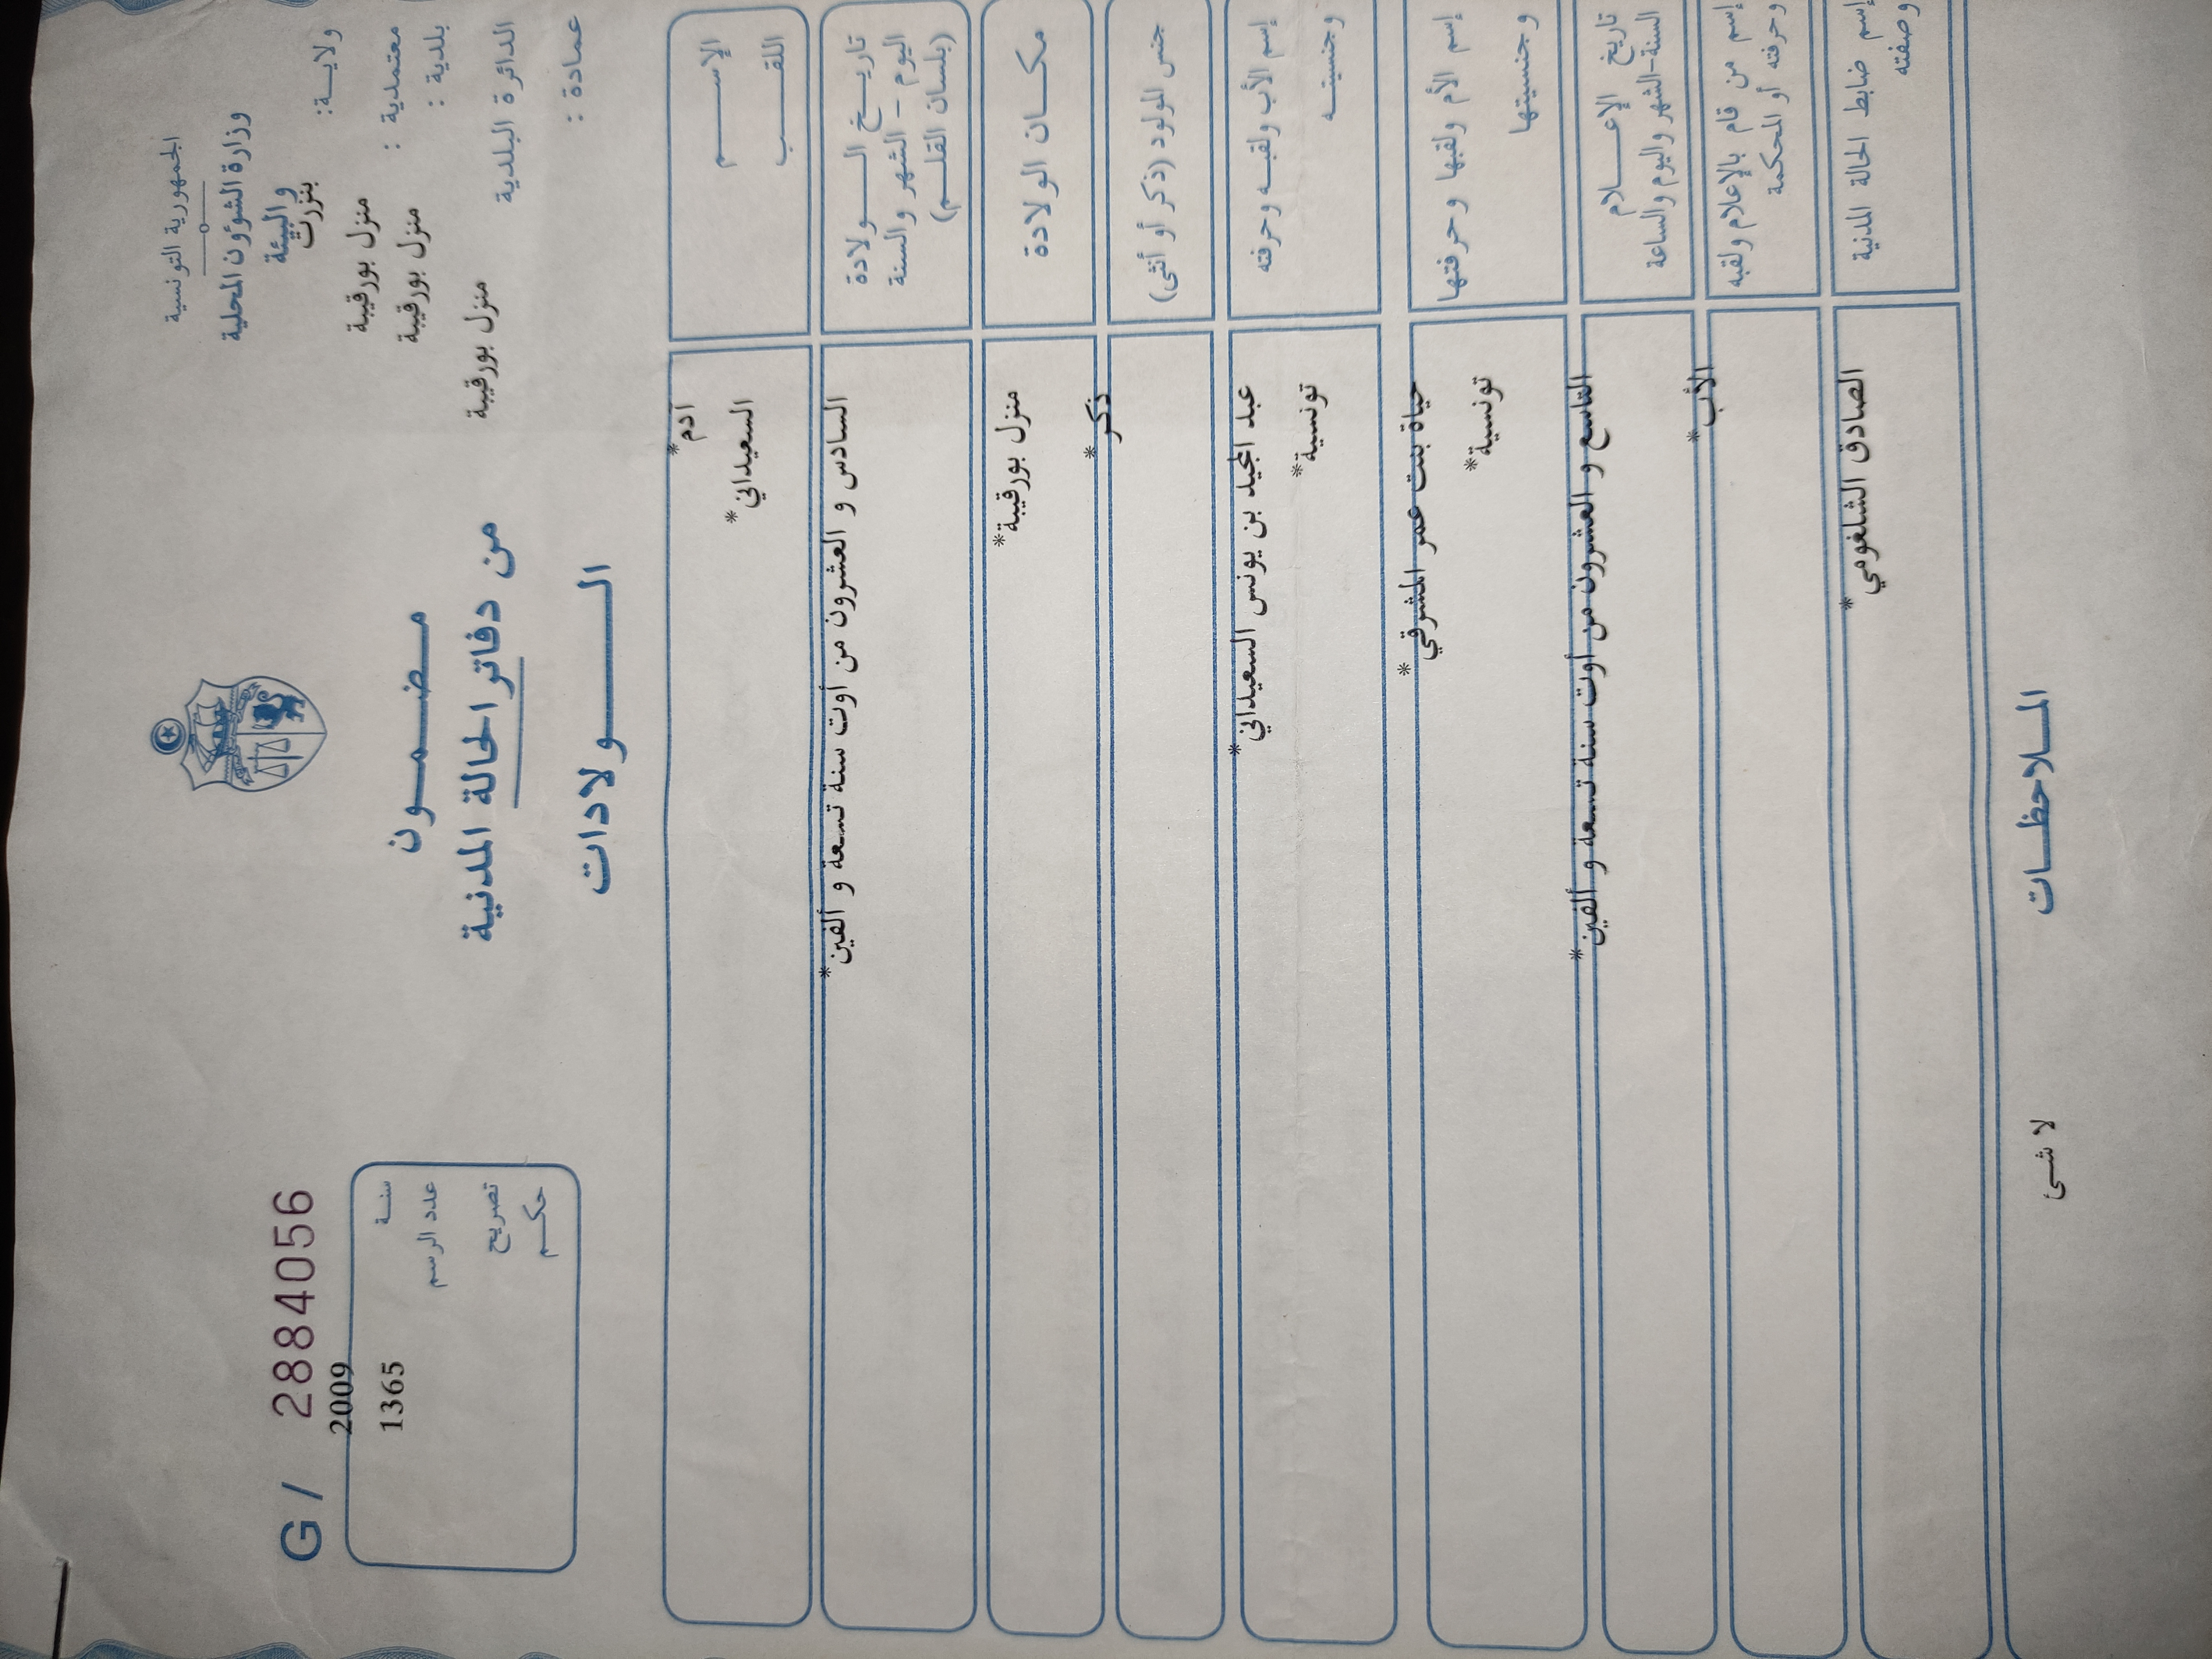 الجمهورية التونسية
وزارة الشؤون المحلية
والبيئة
ولايـــة: بنزرت
معتمدية : منزل بورقيبة
بلدية : منزل بورقيبة
الدائرة البلدية منزل بورقيبة
عمادة :
مـــضـــمـــون
من دفاتر الحالة المدنية
الـــــولادات
G / 28840​56
سنـــة 2009
عدد الرسم 1365
تصريح
حكـــم
الإســـــم آدم*
اللقـــــب السعيداني*
تاريـــخ الـــــولادة
اليوم - الشهر والسنة
(بلسان القلـــم)
السادس و العشرون من أوت سنة تسعة و ألفين*
مكـــان الولادة منزل بورقيبة*
جنس المولود (ذكر أو أنثى) ذكر*
إسم الأب ولقبـــه وحرفته عبد المجيد بن يونس السعيداني*
وجنسيتـــه تونسية*
إسم الأم ولقبها وحرفتها حياة بنت عمر المشرقي*
وجنسيتها تونسية*
تاريخ الإعـــــلام
السنة-الشهر واليوم والساعة
التاسع و العشرون من أوت سنة تسعة و ألفين*
إسم من قام بالإعلام ولقبه
وحرفته أو المحكمة
الأب*
إسم ضابط الحالة المدنية
وصفته
الصادق الشلغومي*
المـــلاحظـــات
لا شئ